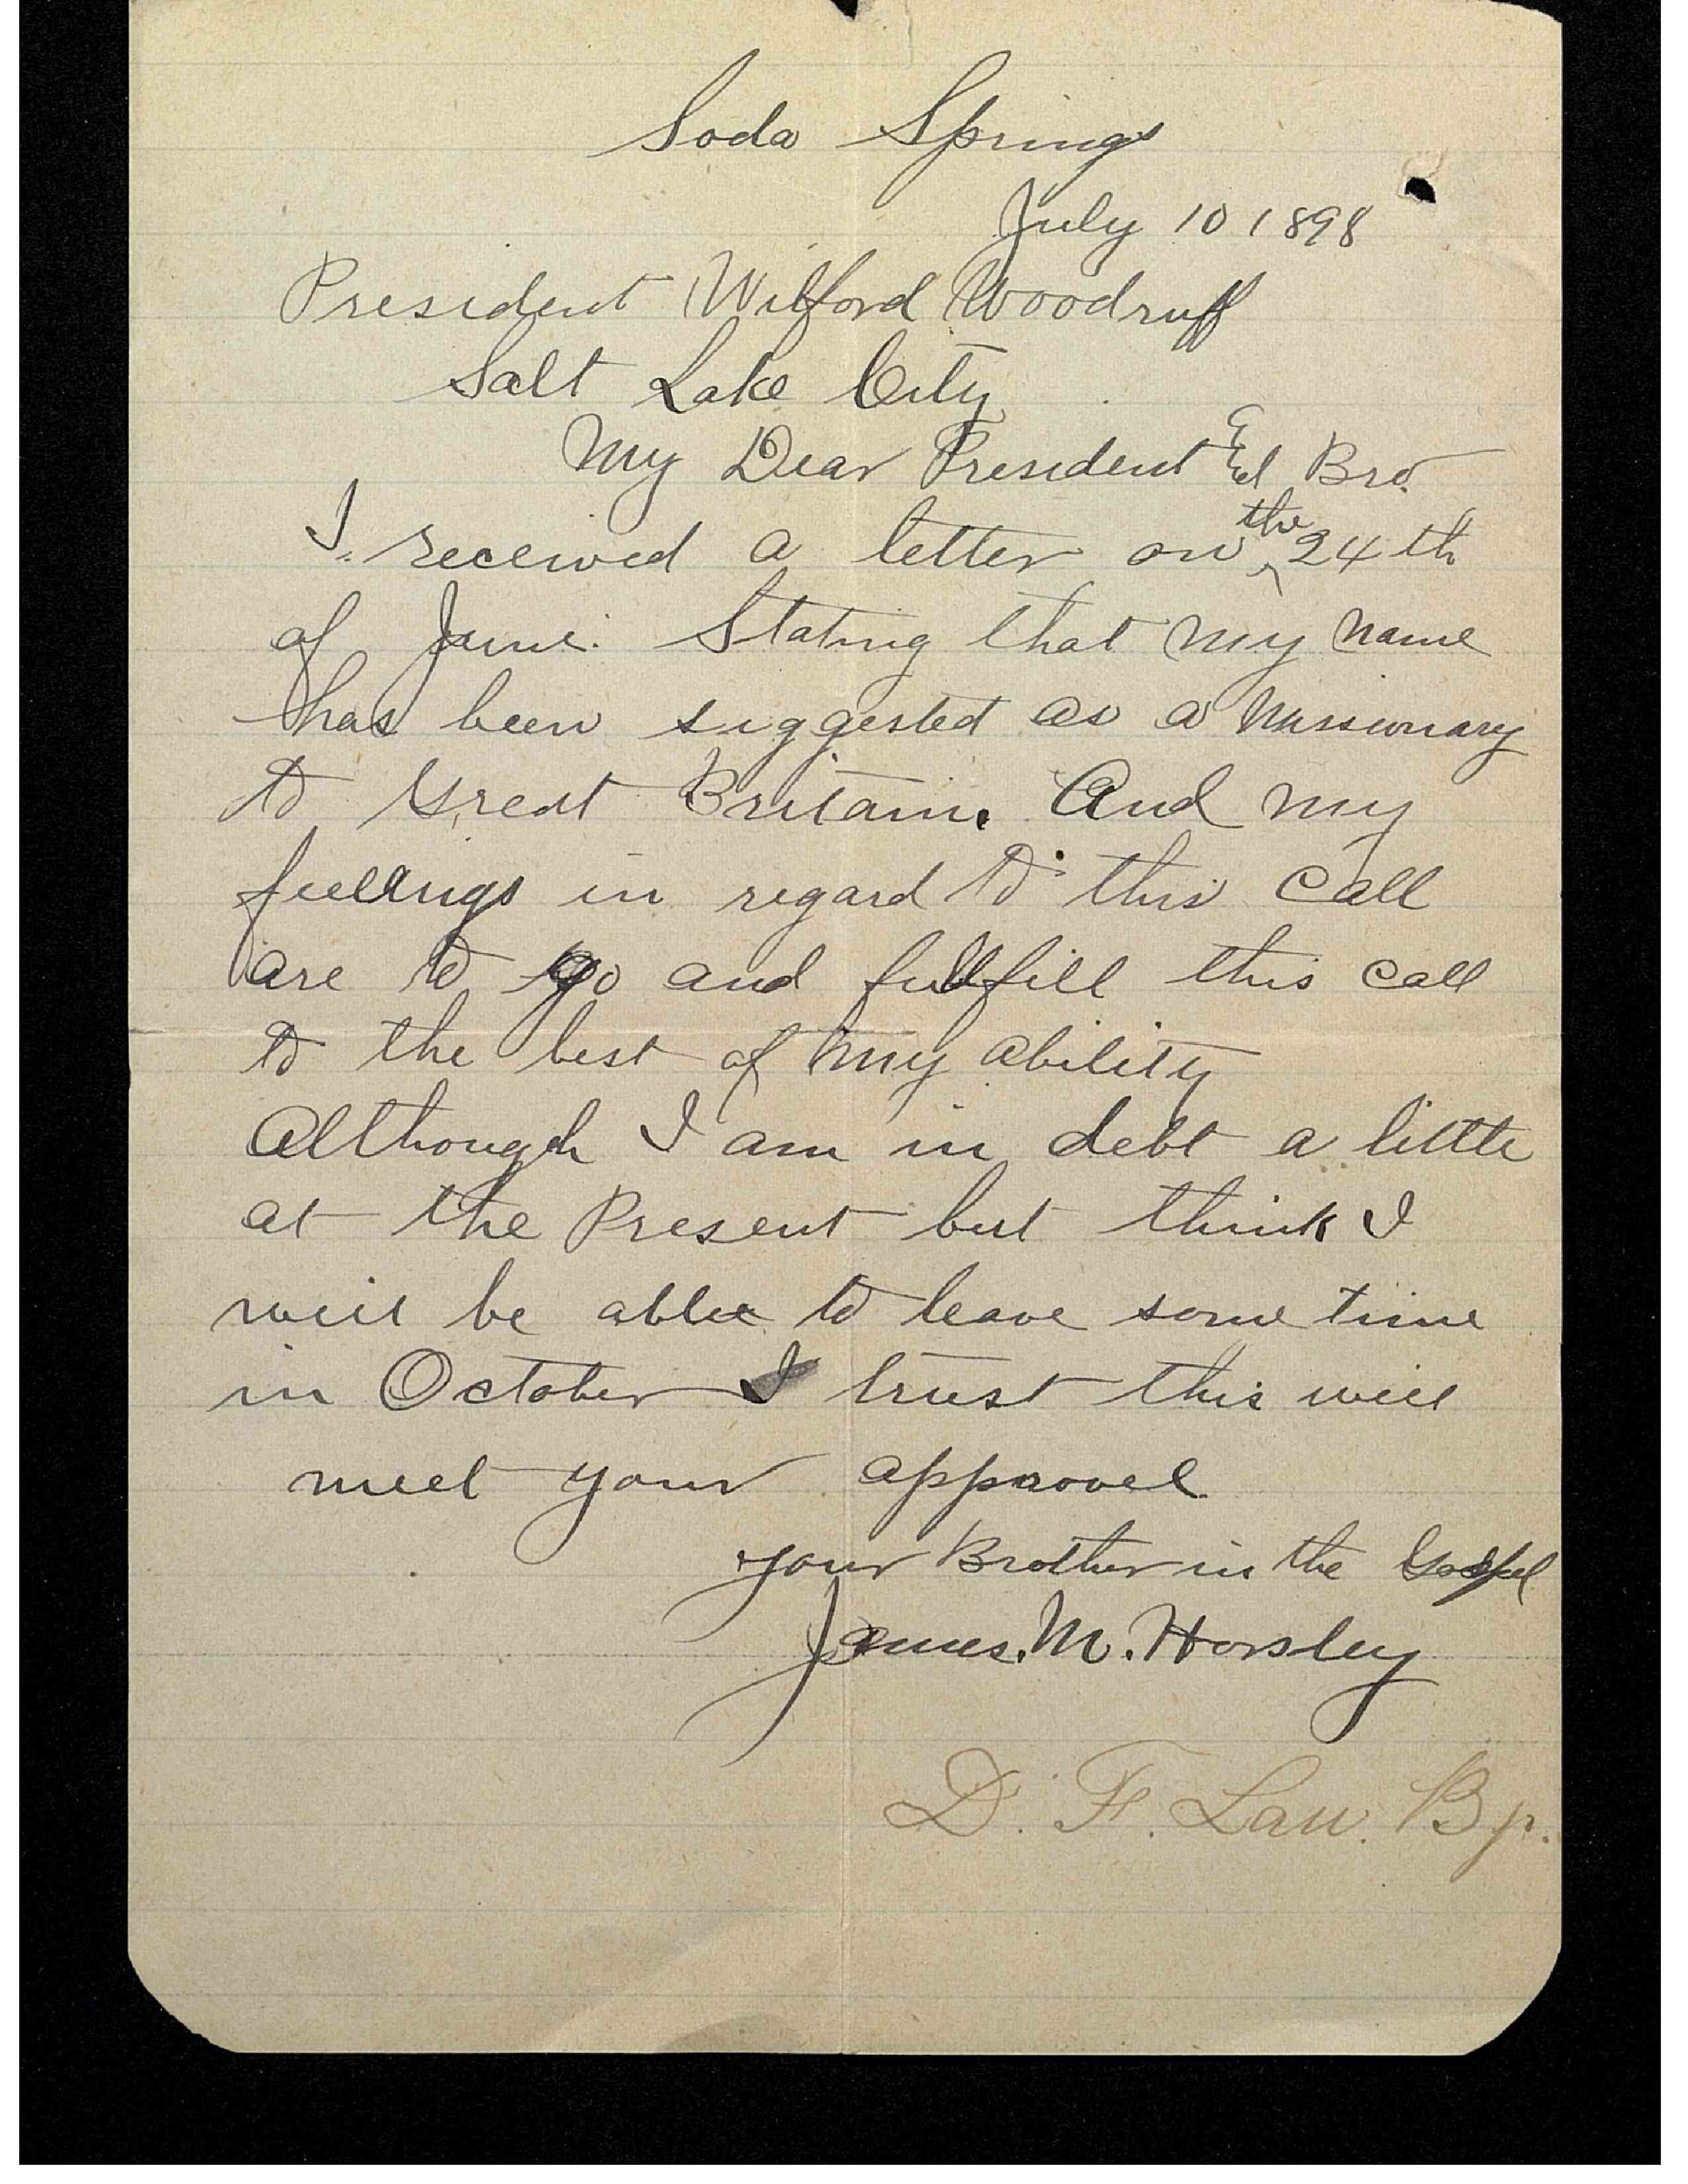 Soda Springs
July 10 1898
President Wilford Woodruff
Salt Lake City
My Dear President & Bro.
I received a letter on the 24th
of June. Stating that my name
has been suggested as a Missionary
to Great Britain. And my
feelings in regard to this call
are to go and fullfill this call
to the best of my ability
Although I am in debt a little
at the Present but think I
will be able to leave some time
in October I trust this will
meet your approvel
your Brother in the Gospel
James. M. Horsley
D. F. Lau. Bp.